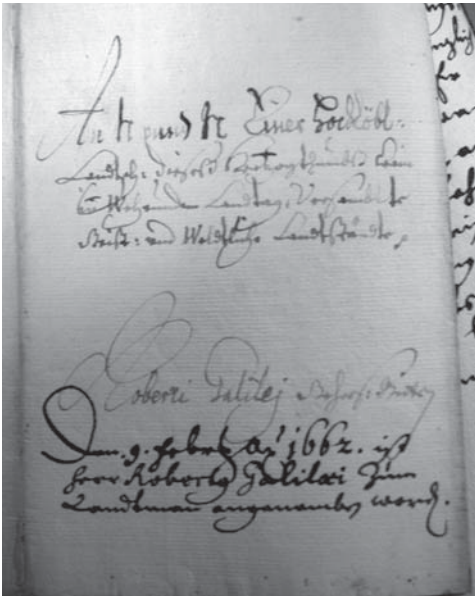 An N und N Einer Hochlöbl:
Landtsch: dieses Herzogthumbs Crain
Landtag, Versambte
Geist: und Weldtliche Landtstände
Roberti Galilej gehors: bitten
Den. 9. febr: Aº 1662. ist
Herr Roberto Galilei Zum
Landtman angenomben word.